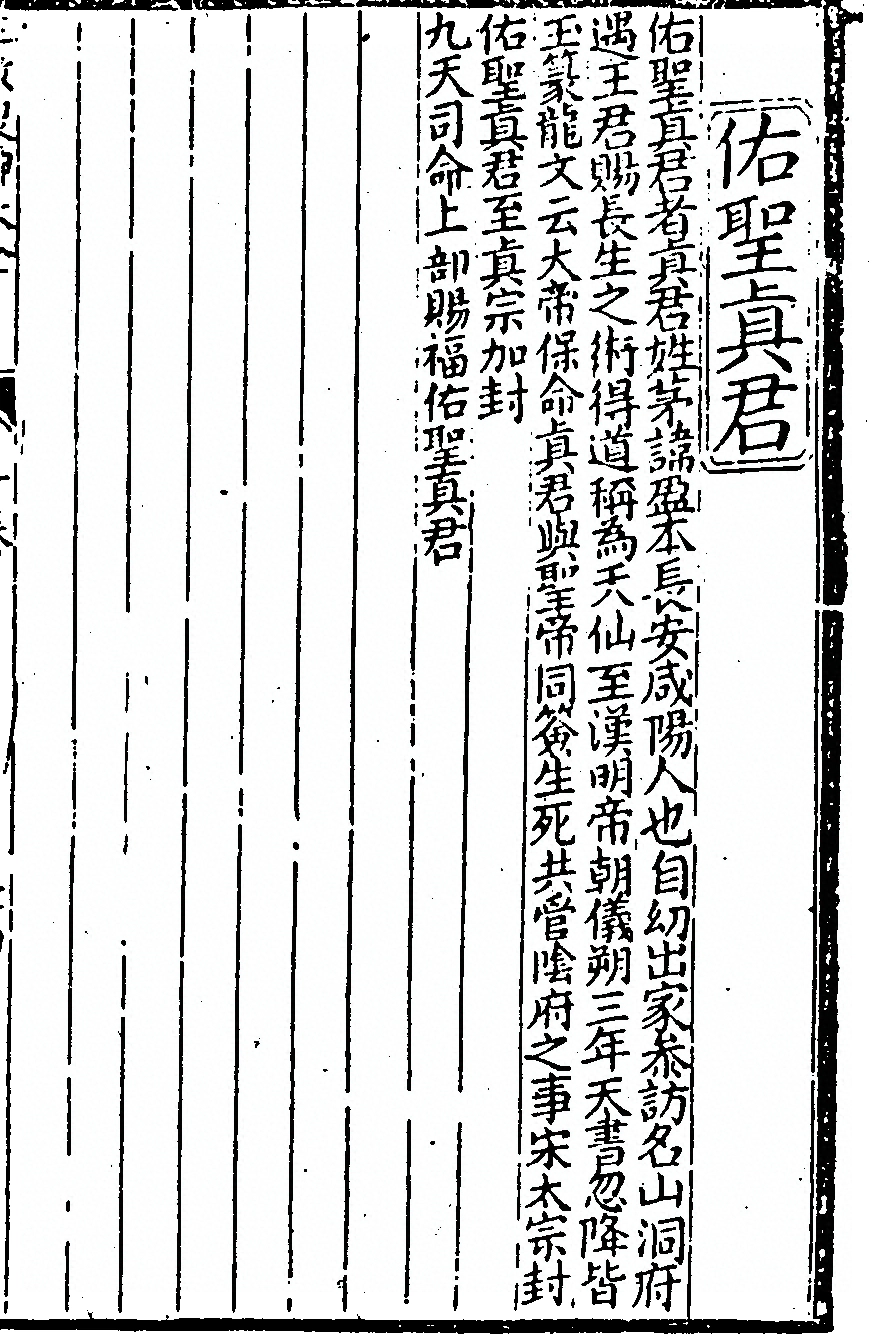 佑聖真君
佑聖真君者真君姓茅諱盈本長安咸陽人也自幼出家叅訪名山洞府
遇王君賜長生之術得道稱為天仙至漢明帝朝儀朔三年天書忽降皆
玉篆龍文云大帝保命真君與聖帝同簽生死共管陰府之事宋太宗封
佑聖真君至真宗加封
九天司命上部賜福佑聖真君